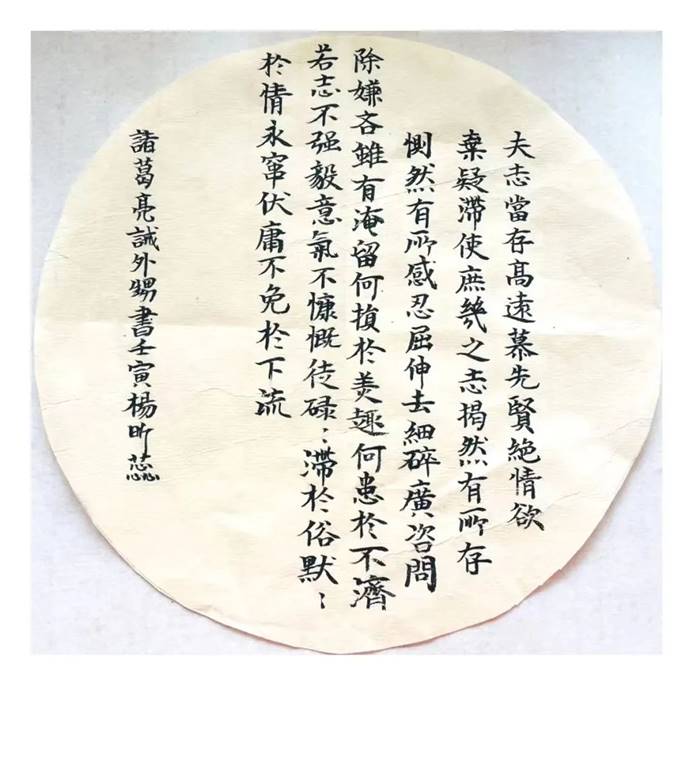 夫志當存高遠慕先賢絕情欲
棄疑滯使庶幾之志揭然有所存
惻然有所感忍屈伸去細碎廣咨問
除嫌吝雖有淹留何損於美趣何患於不濟
若志不强毅意氣不慷慨徒碌：滯於俗默：
於情永窜伏庸不免於下流
諸葛亮誡外甥書壬寅楊昕蕊